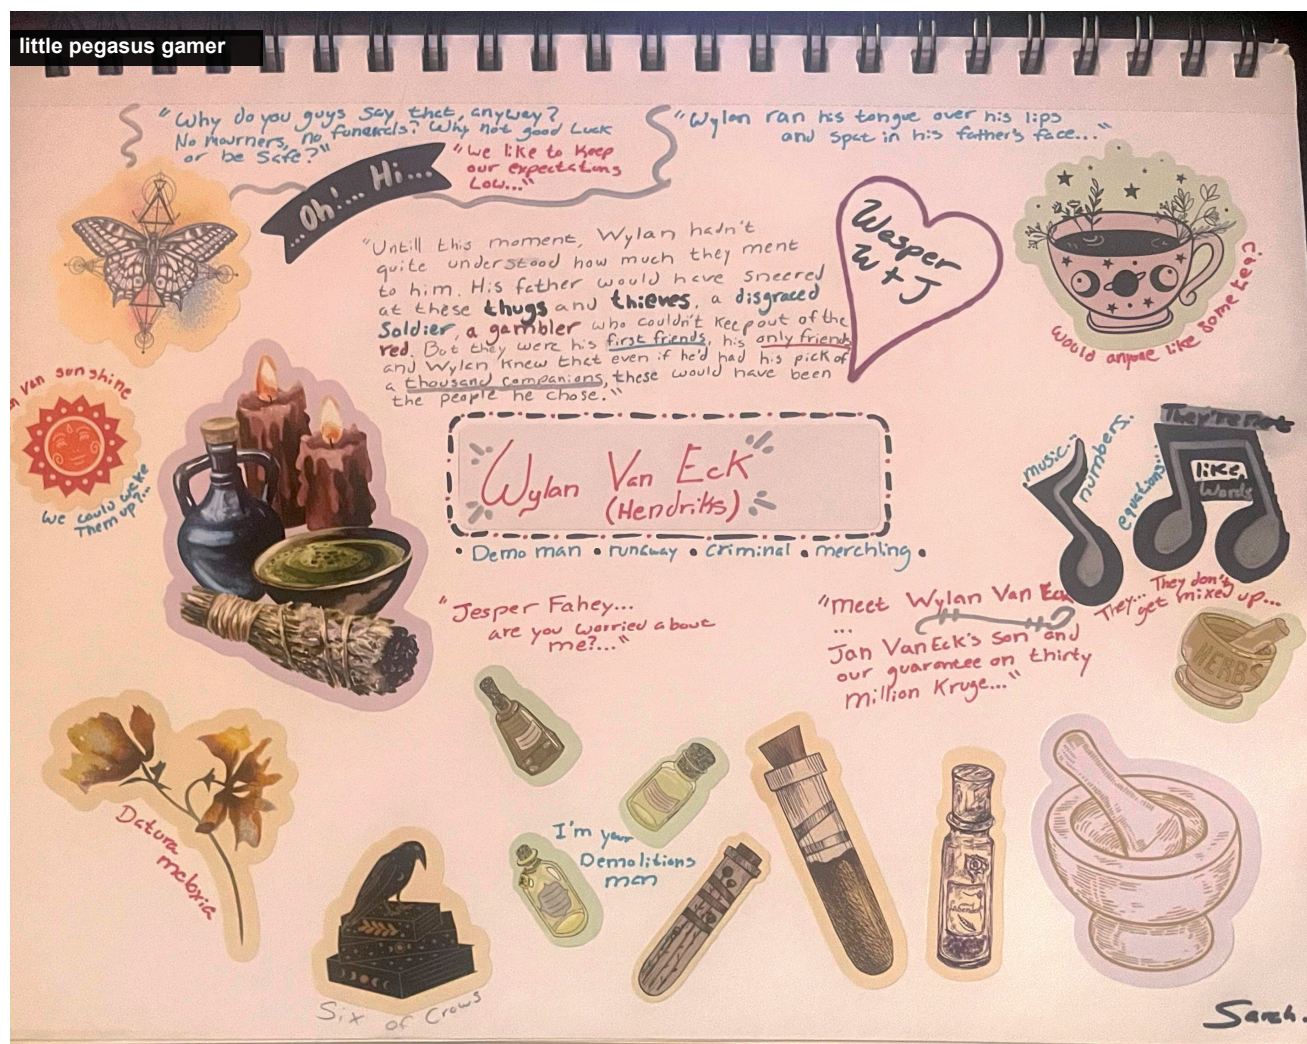 little pegasus gamer
"Why do you guys say that, anyway?
No mourners, no funerals? Why not good Luck
or be Safe?"
"We like to Keep
our expectations
Low..."
"Wylan ran his tongue over his lips
and spat in his father's face..."
...Oh!... Hi...
"Untill this moment, Wylan hadn't
quite understood how much they ment
to him. His father would have sneered
at these thugs and thieves, a disgraced
Soldier, a gambler who couldn't Keep out of the
red. But they were his first friends, his only friends
and Wylan Knew that even if he'd had his pick of
a thousand companions, these would have been
the people he chose."
Wesper
W + J
would anyone like some tea?
van sunshine
we could wake
them up?...
Wylan Van Eck
(Hendriks)
• Demo man • runaway • criminal • merchling •
music.
numbers.
equations...
They're not
like,
Words
They... They don't
get mixed up...
"Jesper Fahey...
are you worried about
me?..."
"meet Wylan Van Eck
...
Jan Van Eck's son and
our guarantee on thirty
million Kruge..."
HERBS
Datura
meloxia
I'm your
Demolitions
man
Lavender
Six of Crows
Sarah.